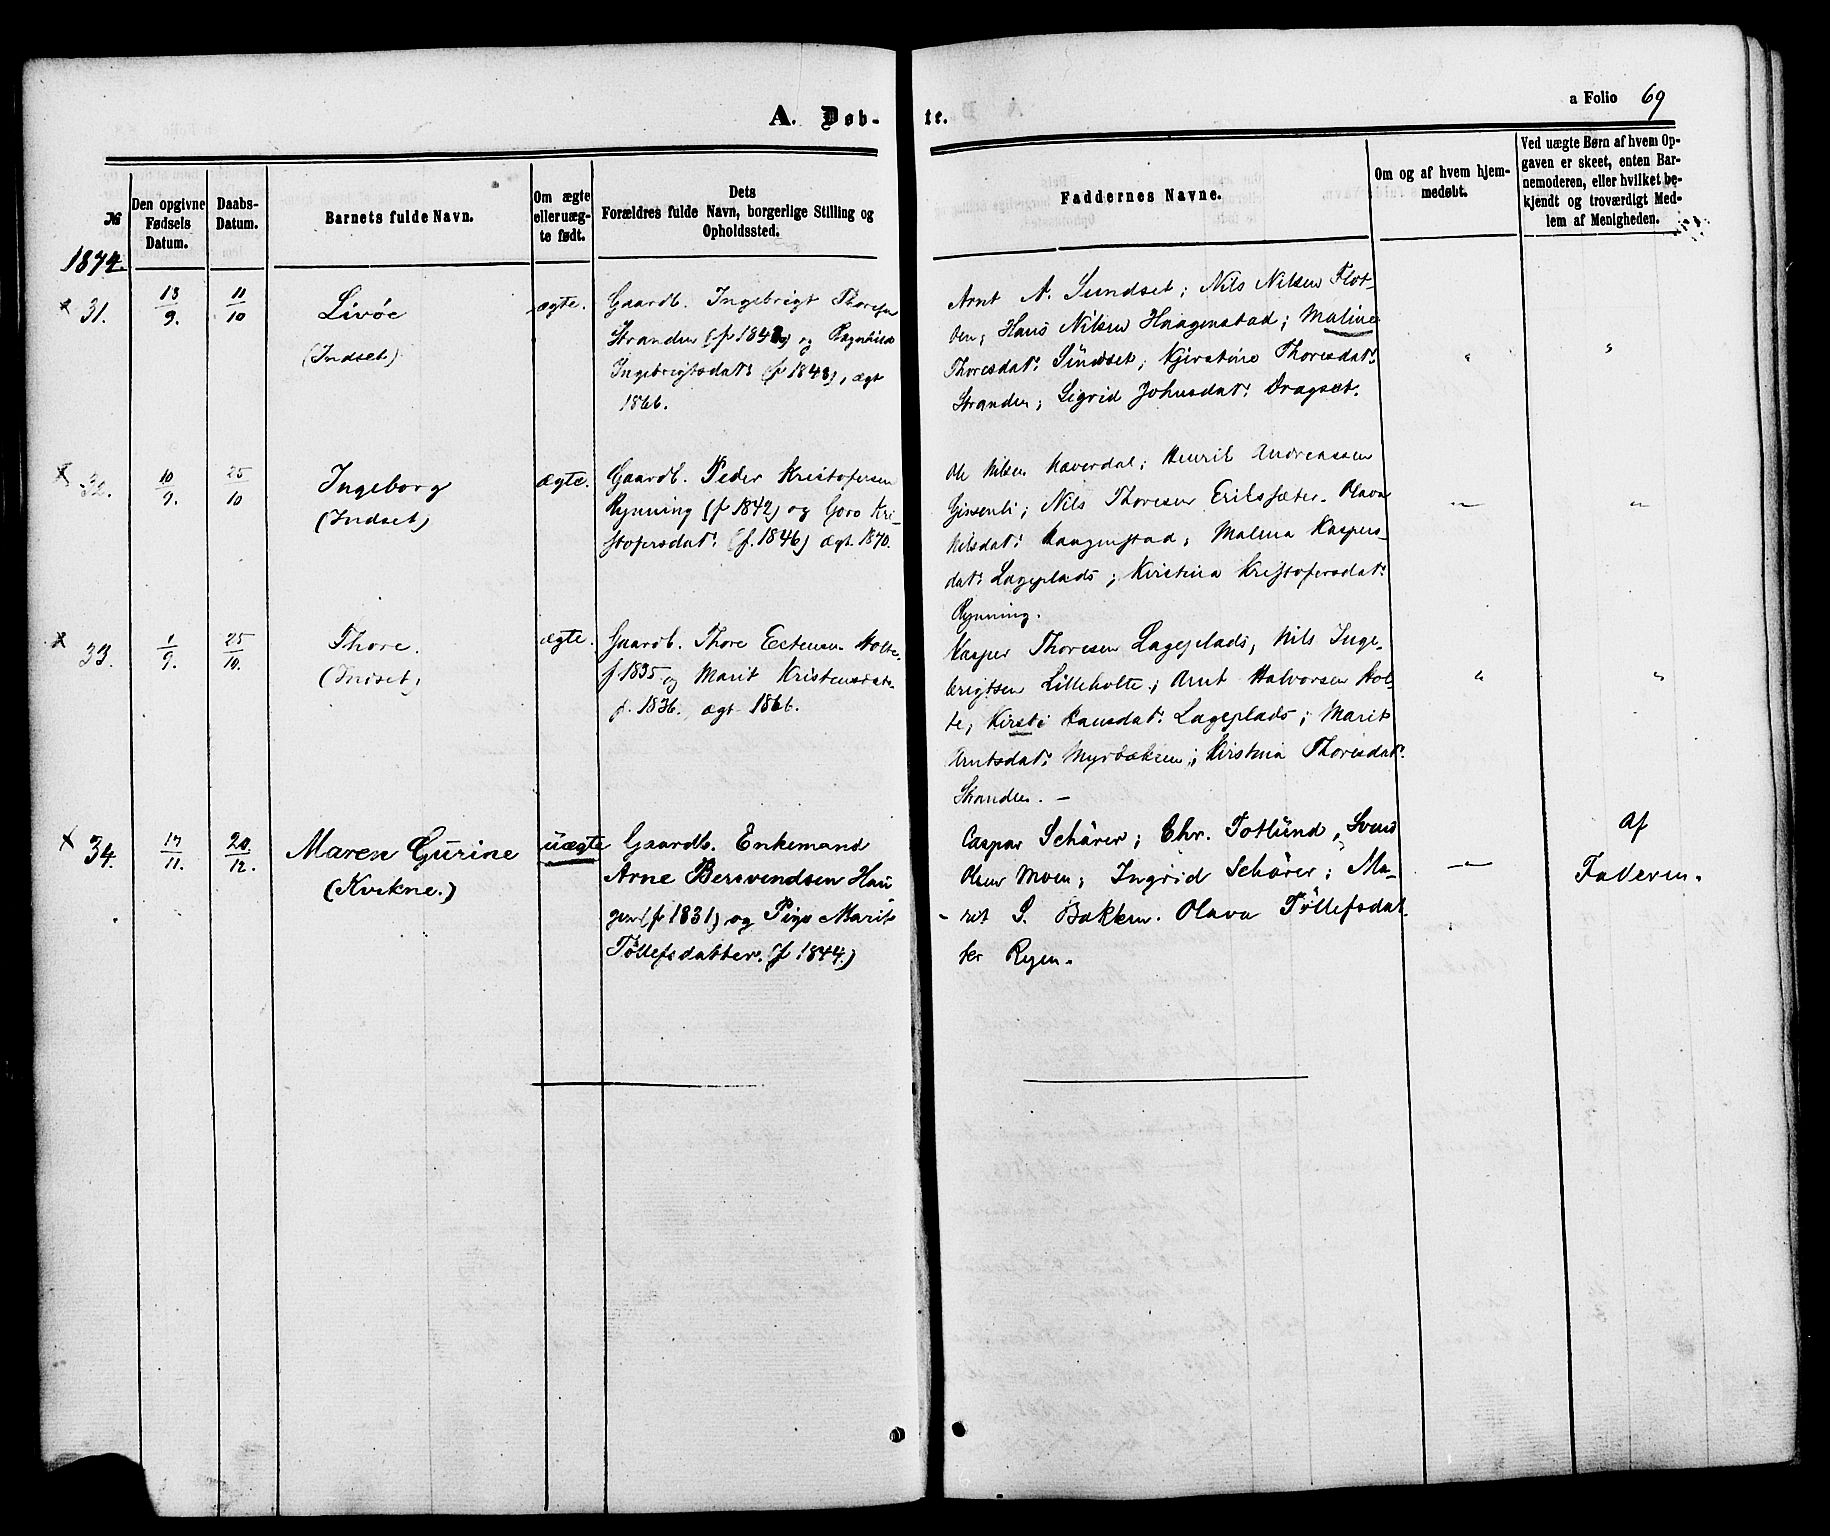 A. Døb-
te.
a Folio 69
№
Den opgivne
Fødsels
Datum.
Daabs-
Datum.
Barnets fulde Navn.
Om ægte
eller uæg-
te født.
Dets
Forældres fulde Navn, borgerlige Stilling og
Opholdssted.
Faddernes Navne.
Om og af hvem hjem-
medøbt.
Ved uægte Børn af hvem Op-
gaven er skeet, enten Bar-
nemoderen, eller hvilket be-
kjendt og troværdigt Med-
lem af Menigheden.
1874.
31.
13/9.
11/10
Livøe
(Indset)
ægte.
Gaardb. Ingebrigt Thoresen
Stranden (f 1843) og Ragnhild
Ingebrigtsdatr (f 1843), ægt
1866.
Arnt A. Sundset; Nils Nilsen Flot-
ten; Hans Nilsen Haagenstad; Maline
Thoresdatr Sundset; Kjirstine Thoresdatr
Stranden; Sigrid Johnsdatr Dragset.
"
"
32.
10/9.
25/10
Ingeborg
(Indset)
ægte.
Gaardb. Peder Kristofersen
Rynning (f 1842) og Goro Kri-
stofersdatr (f. 1846) ægt. 1870.
Ole Nilsen Haverdal; Henrik Andreassen
Ginsenli; Nils Thoresen Erikssæter. Olava
Nilsdatr Haagenstad; Malena Kaspers-
datr Lageplads; Kirstina Kristofersdatr
Rynning.
"
"
33.
1/9.
25/10.
Thore.
(Indset)
ægte.
Gaardb. Thore Estensen Holte
f. 1835 og Marit Kristensdatr
f. 1836. ægt 1866.
Kasper Thoresen Lageplads, Nils Inge-
brigtsen Lilleholte; Arnt Halvorsen Hol-
te; Kirsti Hansdatr Lageplads; Marit
Arntsdatr Myrbækken; Kirstina Thoresdatr
Stranden. —
"
"
34.
17/11.
20/12.
Maren Gurine
(Kvikne.)
uægte
Gaardb. Enkemand
Arne Bersvendsen Hau
gen (f 1831) og Pige Marit
Tøllefsdatter. (f 1844.)
Caspar Schärer; Chr. Totlund, Svend
Olsen Moen; Ingrid Schärer; Ma-
ret S. Bakken. Olava Tøllefsdat-
ter Ryen.
"
Af
Faderen.